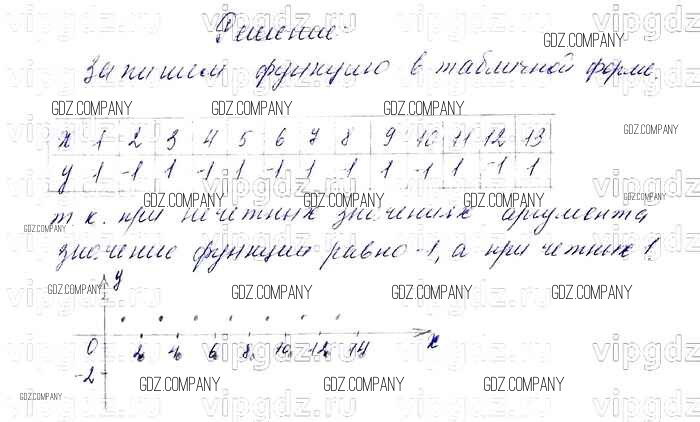 Решение.
GDZ.COMPANY
Запишем функцию в табличной форме.
GDZ.COMPANY GDZ.COMPANY GDZ.COMPANY
GDZ.COMPANY
x 1 2 3 4 5 6 7 8 9 10 11 12 13
y 1 -1 1 -1 1 -1 1 1 1 -1 1 -1 1
GDZ.COMPANY GDZ.COMPANY GDZ.COMPANY
т к. при нечетных значениях аргумента
GDZ.COMPANY
значение функции равно -1, а при четных 1.
y
GDZ.COMPANY GDZ.COMPANY GDZ.COMPANY GDZ.COMPANY
0 2 4 6 8 10 12 14 x
-2
GDZ.COMPANY GDZ.COMPANY GDZ.COMPANY
GDZ.COMPANY
vipgdz.ru